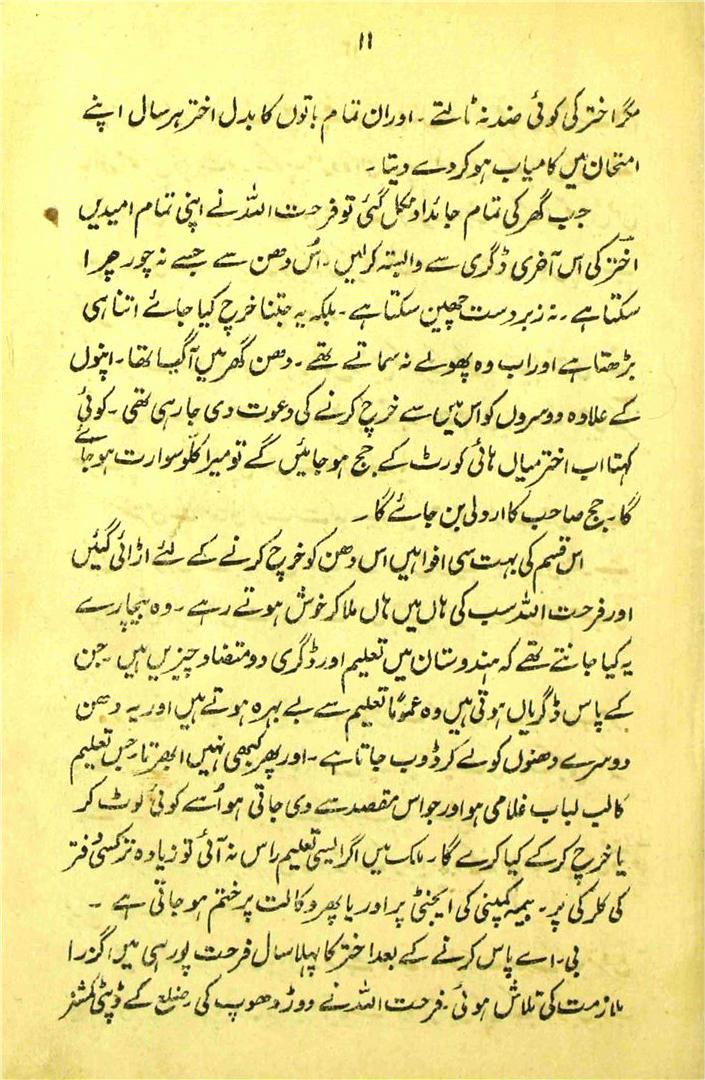 ۱۱
مگر اختر کی کوئی ضد نہ ٹالتے ۔ اور ان تمام باتوں کا بدل اختر ہر سال اپنے
امتحان میں کامیاب ہو کر دے دیتا ۔
جب گھر کی تمام جائداد نکل گئی تو فرحت اللہ نے اپنی تمام امیدیں
اختر کی اس آخری ڈگری سے وابستہ کر لیں ۔ اُس دھن سے جسے نہ چور چرا
سکتا ہے ۔ نہ زبردست چھین سکتا ہے ۔ بلکہ یہ جتنا خرچ کیا جائے اتنا ہی
بڑھتا ہے اور اب وہ پھولے نہ سماتے تھے ۔ دھن گھر میں آگیا تھا ۔ اپنوں
کے علاوہ دوسروں کو اس میں سے خرچ کرنے کی دعوت دی جارہی تھی ۔ کوئی
کہتا اب اختر میاں ہائی کورٹ کے جج ہو جائیں گے تو میرا کلّو سوارت ہو جائے
گا ۔ جج صاحب کا اردلی بن جائے گا ۔
اس قسم کی بہت سی افواہیں اس دھن کو خرچ کرنے کے لئے اڑائی گئیں
اور فرحت اللہ سب کی ہاں میں ہاں ملا کر خوش ہوتے رہے ۔ وہ بیچارے
یہ کیا جانتے تھے کہ ہندوستان میں تعلیم اور ڈگری دو متضاد چیزیں ہیں ۔ جن
کے پاس ڈگریاں ہوتی ہیں وہ عموماً تعلیم سے بے بہرہ ہوتے ہیں اور یہ دھن
دوسرے دھنوں کو لے کر ڈوب جاتا ہے ۔ اور پھر کبھی نہیں ابھرتا ۔ جس تعلیم
کا لب لباب غلامی ہو اور جو اس مقصد سے دی جاتی ہو اُسے کوئی لوٹ کر
یا خرچ کر کے کیا کرے گا ۔ ملک میں اگر ایسی تعلیم راس نہ آئی تو زیادہ تر کسی دفتر
کی کلرکی پر ۔ بیمہ کمپنی کی ایجنٹی پر اور یا پھر وکالت پر ختم ہو جاتی ہے ۔
بی ۔ اے پاس کرنے کے بعد اختر کا پہلا سال فرحت پور ہی میں گزرا
ملازمت کی تلاش ہوئی ۔ فرحت اللہ نے دوڑ دھوپ کی ۔ ضلع کے ڈپٹی کمشنر